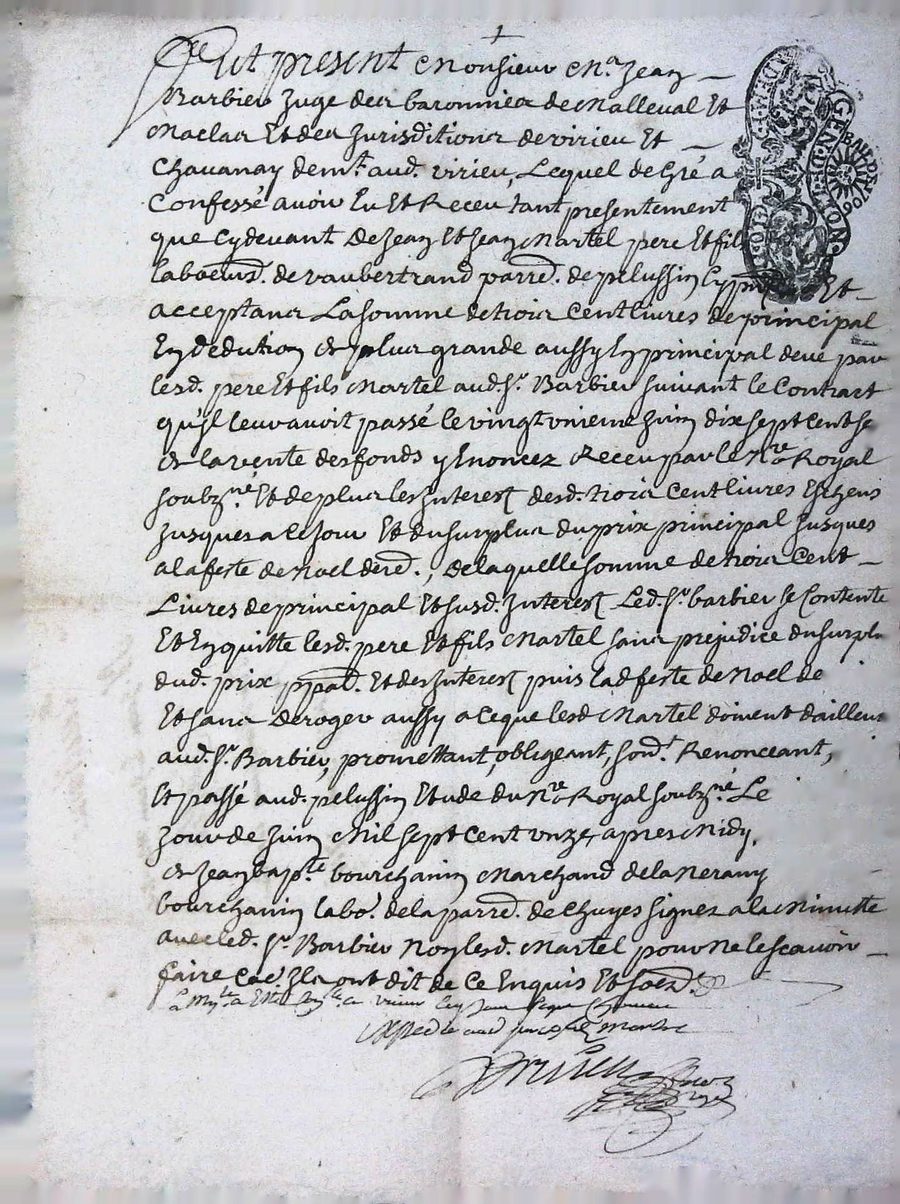 Fut present Monsieur Me. Jean
Barbier Juge des baronnies de Malleval Et
Maclas Et des Jurisditions de virieu Et
Chavanay demt. aud. virieu, Lequel de Gré a
Confessé avoir Eu Et Receu tant presentement
que Cy devant De Jean Et Jean Martel pere Et fils
laboeurs. de vaubertrand parre. de pelussin Cy Et
acceptans La somme de trois Cent livres de principal
En dedution de plus grande aussy En principal deue par
lesd. pere Et fils Martel aud. Sr. Barbier suivant le Contract
qu'Il leur avoit passé le vingt unieme Juin dix sept cent se
de la vente des fonds y Enoncez Receu par le Nre. Royal
soubzné. Et de plus les Interest desd. trois Cent livres
Jusques a Ce Jour Et du surplus du prix principal Jusques
a la feste de Noel dere., De laquelle somme de trois Cent
Livres de principal Et susd. Interest Led. Sr. barbier se Contente
Et En quitte lesd. pere Et fils Martel sans prejudice du surplu
dud. prix ppal. Et des Interest puis lad feste de Noel de
Et sans Deroger aussy a Ce que lesd Martel doivent d'ailleur
aud. Sr. Barbier, promettant, obligeant, Renonceant,
Et passé aud. pelussin Etude du Nre. Royal soubzné. Le
Jour de Juin Mil sept Cent unze, apres Midy,
de Jean bapte. bourchanin Marchand de la Nerany
bourchanin labor. de la parre. de Chuyes signez a la Minutte
avec led. Sr. Barbier Non lesd. Martel pour ne le scavoir
faire Car Ils ont dit de Ce Enquis Et